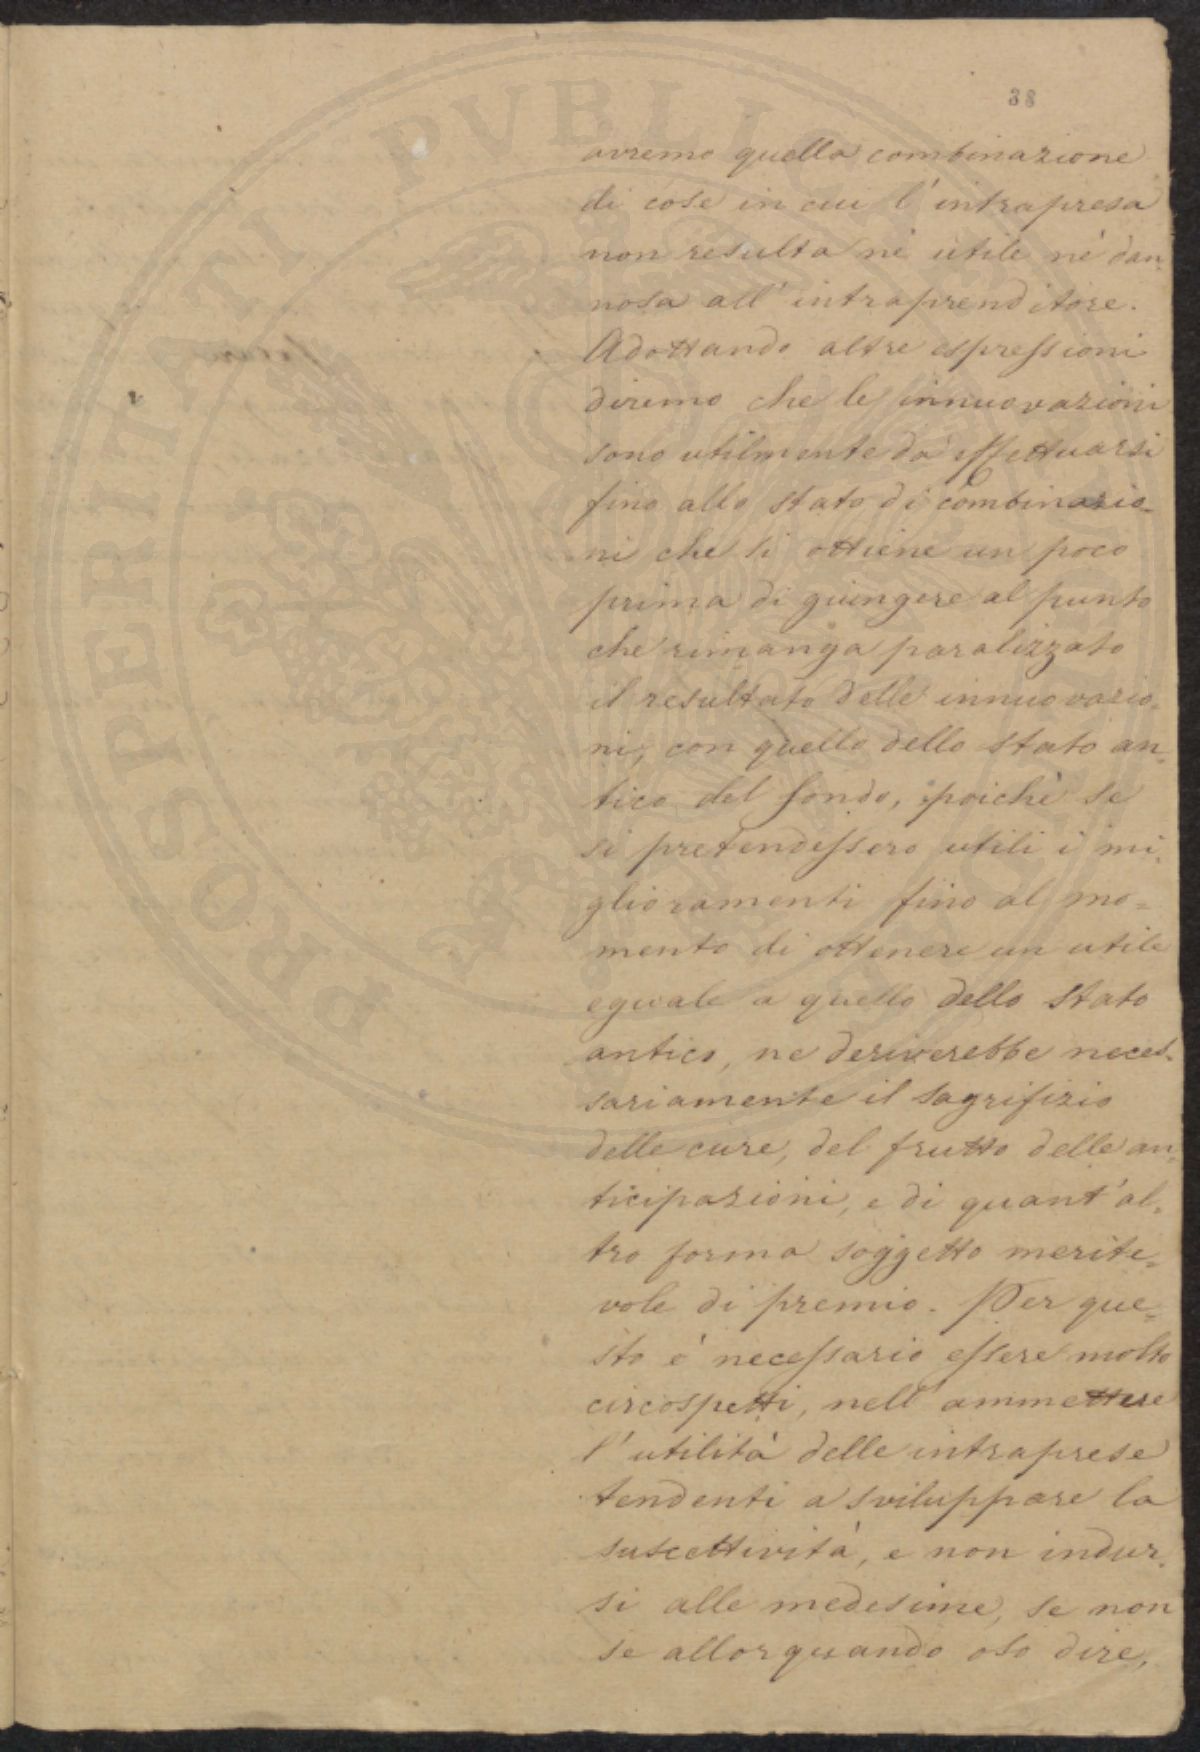 38
avremo quella combinazione
di cose in cui l'intrapresa
non resulta nè utile nè dan=
nosa all'intraprenditore.
Adottando altre espressioni
diremo che le innuovazioni
sono utilmente da effettuarsi
fino allo stato di combinazio=
ni che si ottiene un poco
prima di giungere al punto
che rimanga paralizzato
il resultato delle innuovazio=
ni, con quello dello stato an=
tico del fondo, poichè se
si pretendessero utili i mi=
glioramenti fino al mo=
mento di ottenere un utile
eguale a quello dello stato
antico, ne deriverebbe neces=
sariamente il sagrifizio
delle cure, del frutto delle an=
ticipazioni, e di quant'al=
tro forma soggetto merite=
vole di premio. Per que=
sto è necessario essere molto
circospetti, nell'ammettere
l'utilità delle intraprese
tendenti a sviluppare la
suscettività, e non indur=
si alle medesime, se non
se allorquando oso dire,
PROSPERITATI PVBLICAE